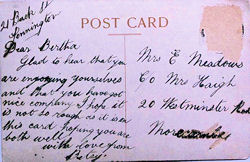 21 Back St
Pennington
POST CARD
Dear Bertha
Glad to hear that you
are enjoying yourselves
and that you have got
nice company I hope it
is not so rough as it is on
this card hoping you are
both well
with love from
Mrs E Meadows
C/o Mrs Haigh
20 Westminster Road